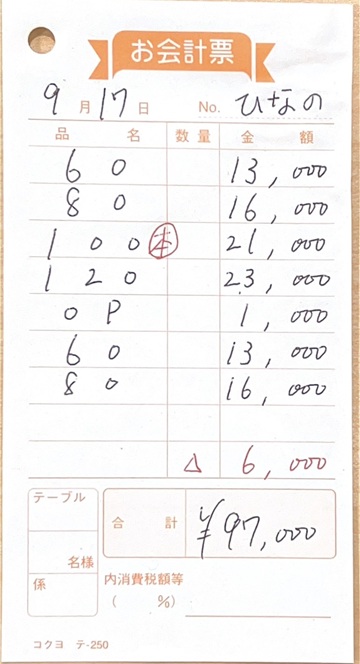 お会計票
9月17日 No. ひなの
品名 数量 金額
60 13,000
80 16,000
100 本 21,000
120 23,000
OP 1,000
60 13,000
80 16,000
△ 6,000
テーブル
名様
係
合計 ¥97,000
内消費税額等
( %)
コクヨ テ-250